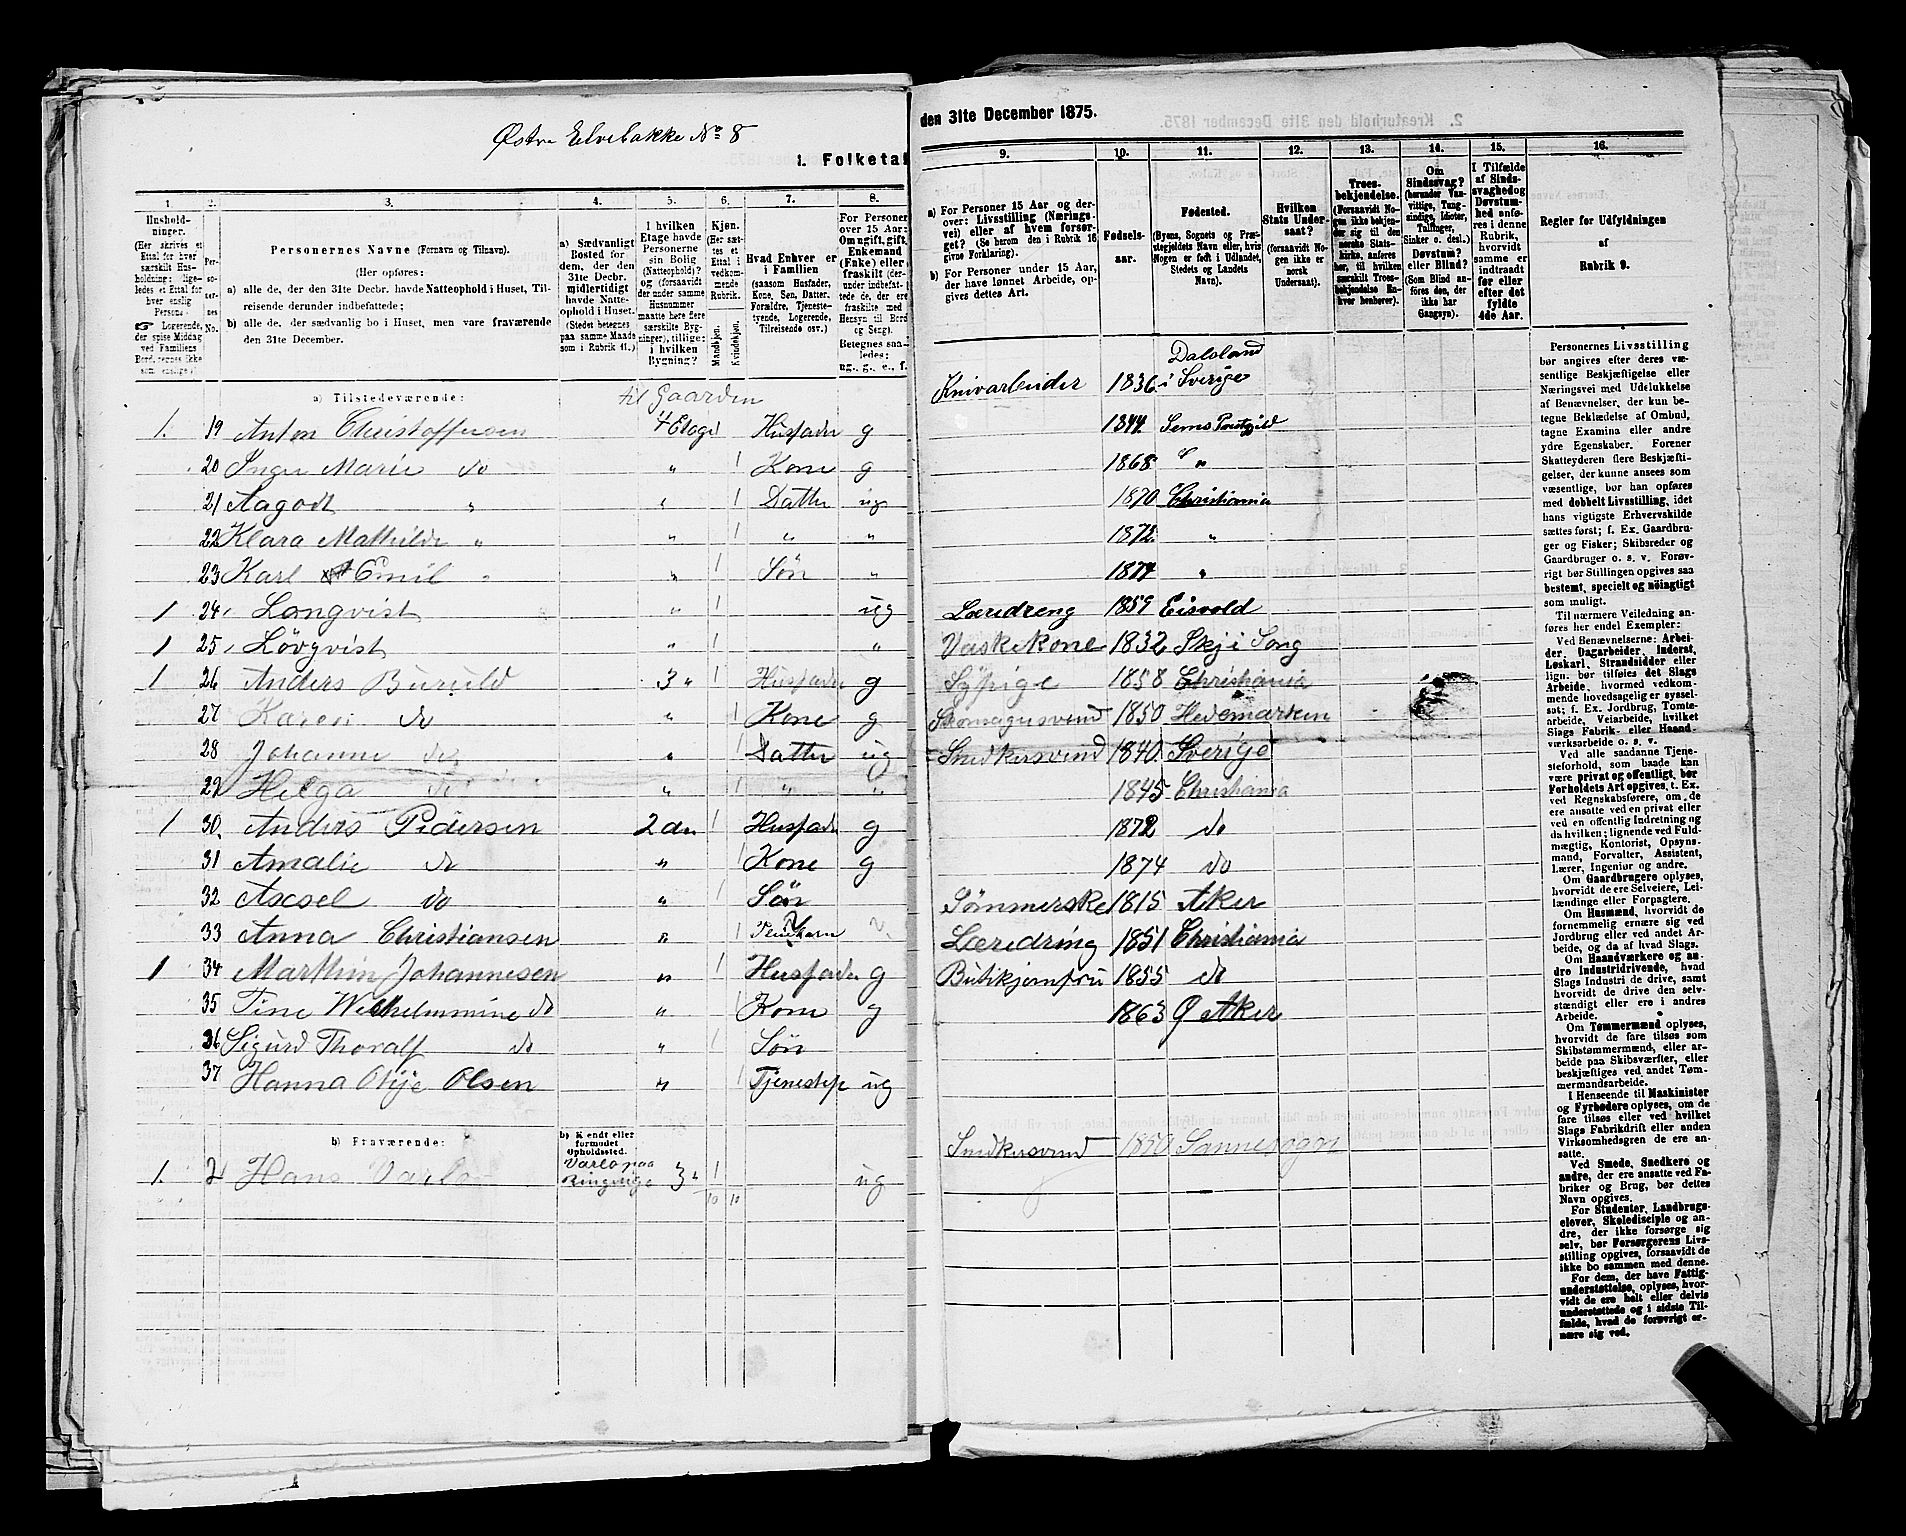 Østre Elvebakke No 8
1. Folketal
den 31te December 1875.
1. 2. 3. 4. 5. 6. 7. 8.
9. 10. 11. 12. 13. 14. 15. 16.
Husholdninger.
(Her skrives et Ettal for hver særskilt Husholdning; ligeledes et Ettal for hver enslig Person.
☞ Logerende, der spise Middag ved Familiens Bord, regnes ikke som enslige.)
Personernes No.
Personernes Navne (Fornavn og Tilnavn).
(Her opføres:
a) alle de, der den 31te Decbr. havde Natteophold i Huset, Tilreisende derunder indbefattede;
b) alle de, der sædvanlig bo i Huset, men vare fraværende den 31te December.
a) Sædvanligt Bosted for dem, der den 31te Decbr. midlertidigt havde Natteophold i Huset. (Stedet betegnes paa samme Maade som i Rubrik 11.)
I hvilken Etage havde Personerne sin Bolig (Natteophold)? og (forsaavidt der under samme Husnummer maatte høre flere særskilte Bygninger), tillige: i hvilken Bygning?
Kjøn. (Her sættes et Ettal i vedkommende Rubrik.
Mandkjøn. Kvindekjøn.
Hvad Enhver er i Familien (saasom Husfader, Kone, Søn, Datter, Forældre, Tjenestetyende, Logerende, Tilreisende osv.)
For Personer over 15 Aar: Om ugift, gift, Enkemand (Enke) eller fraskilt (derunder indbefattede de, der ere fraskilte med Hensyn til Bord og Seng). Betegnes saaledes: ug., g., e., f.
a) For Personer 15 Aar og derover: Livsstilling (Næringsvei) eller af hvem forsørget? (Se herom den i Rubrik 16 givne Forklaring).
b) For Personer under 15 Aar, der have lønnet Arbeide, opgives dettes Art.
Fødselsaar.
Fødested.
(Byens, Sognets og Præstegjeldets Navn eller, hvis Nogen er født i Udlandet, Stedets og Landets Navn).
Hvilken Stats Undersaat? (forsaavidt Nogen ikke er norsk Undersaat).
Troesbekjendelse. (Forsaavidt Nogen ikke bekjender sig til den norske Statskirke, anføres her, til hvilken Troesbekjendelse Enhver henhører).
Om Sindssvag? (herunder Vanvittige, Tungsindige, Idioter, Talfinger, Sinker o. desl.) Døvstum? eller Blind? (Som Blind anføres den, der ikke har Gangsyn).
I Tilfælde af Sindssvaghed og Døvstumhed anføres i denne Rubrik, hvorvidt samme er indtraadt før eller efter det fyldte 4de Aar.
Regler for Udfyldningen af Rubrik 9.
a) Tilstedeværende: til Gaarden
Knivarbeider 1836 Dalsland i Sverige
1. 19 Anton Christoffersen 4 Etage 1 Husfader g
1844 Sems Præstgjeld
20 Inger Marie do " 1 Kone g
1868 "
21 Aagodt " " 1 Datter ug
1870 Christiania
22 Klara Mathilde " " 1 " "
1872 "
23 Karl Emil " " 1 Søn "
1874 "
1 24 Longvist " 1 ug
Læredreng 1859 Eisvold
1 25 Lövqvist " 1 "
Vaskekone 1832 Skji Song
1 26 Anders Buruld 3 " 1 Husfader g
Sypige 1858 Christiania
27 Karen do " 1 Kone g
1850 Hedemarken
28 Johanne do " 1 Datter ug
Snedkersvend 1840 Sverige
29 Helga do " 1 " "
1845 Christiania
1 30. Anders Pedersen 2 den 1 Husfader g
1872 do
31 Amalie do " 1 Kone g
1874 do
32 Axsel do " 1 Søn
Sömmerske 1815 Aker
33 Anna Christiansen " 1
Læredring 1851 Christiania
1 34 Marthin Johannesen " 1 Husfader g
Butikjomfru 1855 do
35 Tine Wilhelmmine do " 1 Kone g
1863 Ø Aker
36 Sigurd Thoralf do " 1 Søn
37 Hanna Otije Olsen " 1 Tjenestep ug
b) Fraværende:
b) Kendt eller formodet Opholdssted.
1. 2 Hans Varlo Varlo paa Ringerige 3 " 1 ug
Snedkersvend 1850
10 10
Personernes Livsstilling bør angives efter deres væsentlige Beskjæftigelse eller Næringsvei med Udelukkelse af Benævnelser, der kun betegne Beklædelse af Ombud, tagne Examina eller andre ydre Egenskaber. Forener Skatteyderen flere Beskjæftigelser, der kunne ansees som væsentlige, bør han opføres med dobbelt Livsstilling, idet hans vigtigste Erhvervskilde sættes først; f. Ex. Gaardbruger og Fisker; Skibsreder og Gaardbruger o. s. v. Forøvrigt bør Stillingen opgives saa bestemt, specielt og nöiagtigt som muligt.
Til nærmere Veiledning anføres her endel Exempler:
Ved Benævnelserne: Arbeider, Dagarbeider, Inderst, Løskarl, Strandsidder eller lign. bør tilføies det Slags Arbeide, hvormed vedkommende hovedsagelig er sysselsat; f. Ex. Jordbrug, Tomtearbeide, Veiarbeide, hvilket Slags Fabrik- eller Haandværksarbeide o. s. v.
Ved alle saadanne Tjenesteforhold, som baade kan være privat og offentligt, bør Forholdets Art opgives, t. Ex. ved Regnskabsførere, om de ere ansatte ved en privat eller ved en offentlig Indretning og da hvilken; lignende ved Fuldmægtig, Kontorist, Opsynsmand, Forvalter, Assistent, Lærer, Ingeniør og andre.
Om Gaardbrugere oplyses, hvorvidt de ere Selveiere, Leilændinge eller Forpagtere.
Om Husmænd, hvorvidt de fornemmelig ernære sig ved Jordbrug eller ved andet Arbeide, og da af hvad Slags.
Om Haandværkere og andre Industridrivende, hvad Slags Industri de drive, samt hvorvidt de drive den selvstændigt eller ere i andres Arbeide.
Om Tømmermænd oplyses, hvorvidt de fare tilsøs som Skibstømmermænd, eller arbeide paa Skibsværfter, eller beskjæftiges ved andet Tømmermandsarbeide.
I Henseende til Maskinister og Fyrbødere oplyses, om de fare tilsøs eller ved hvilket Slags Fabrikdrift eller anden Virksomhedsgren de ere ansatte.
Ved Smede, Snedkere og andre, der ere ansatte ved Fabriker og Brug, bør dettes Navn opgives.
For Studenter, Landbrugselever, Skoledisciple og andre, der ikke forsørge sig selv, bør Forsørgerens Livsstilling opgives, forsaavidt de ikke bo sammen med denne.
For dem, der have Fattigunderstøttelse, oplyses, hvorvidt de ere helt eller delvis understøttede og i sidste Tilfælde, hvad de forøvrigt ernære sig ved.